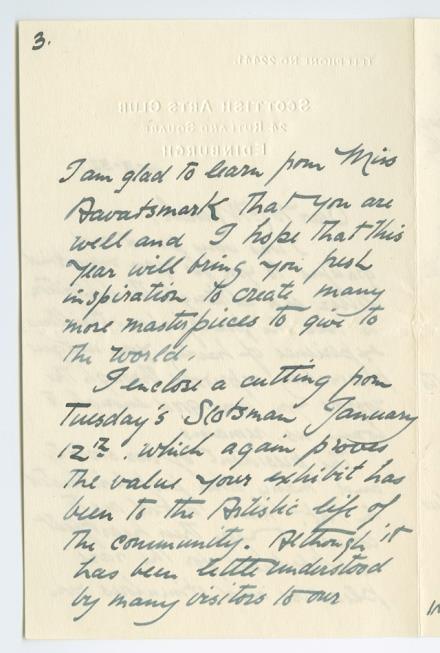 3.
TELEPHONE No 22441.
SCOTTISH ARTS CLUB
24 RUTLAND SQUARE
EDINBURGH
I am glad to learn from Miss
Aavatsmark that you are
well and I hope that this
year will bring you fresh
inspiration to create many
more masterpieces to give to
the world.
I enclose a cutting from
Tuesday's Scotsman January
12th. which again proves
the value your exhibit has
been to the Artistic life of
the community. Although it
has been little understood
by many visitors to our